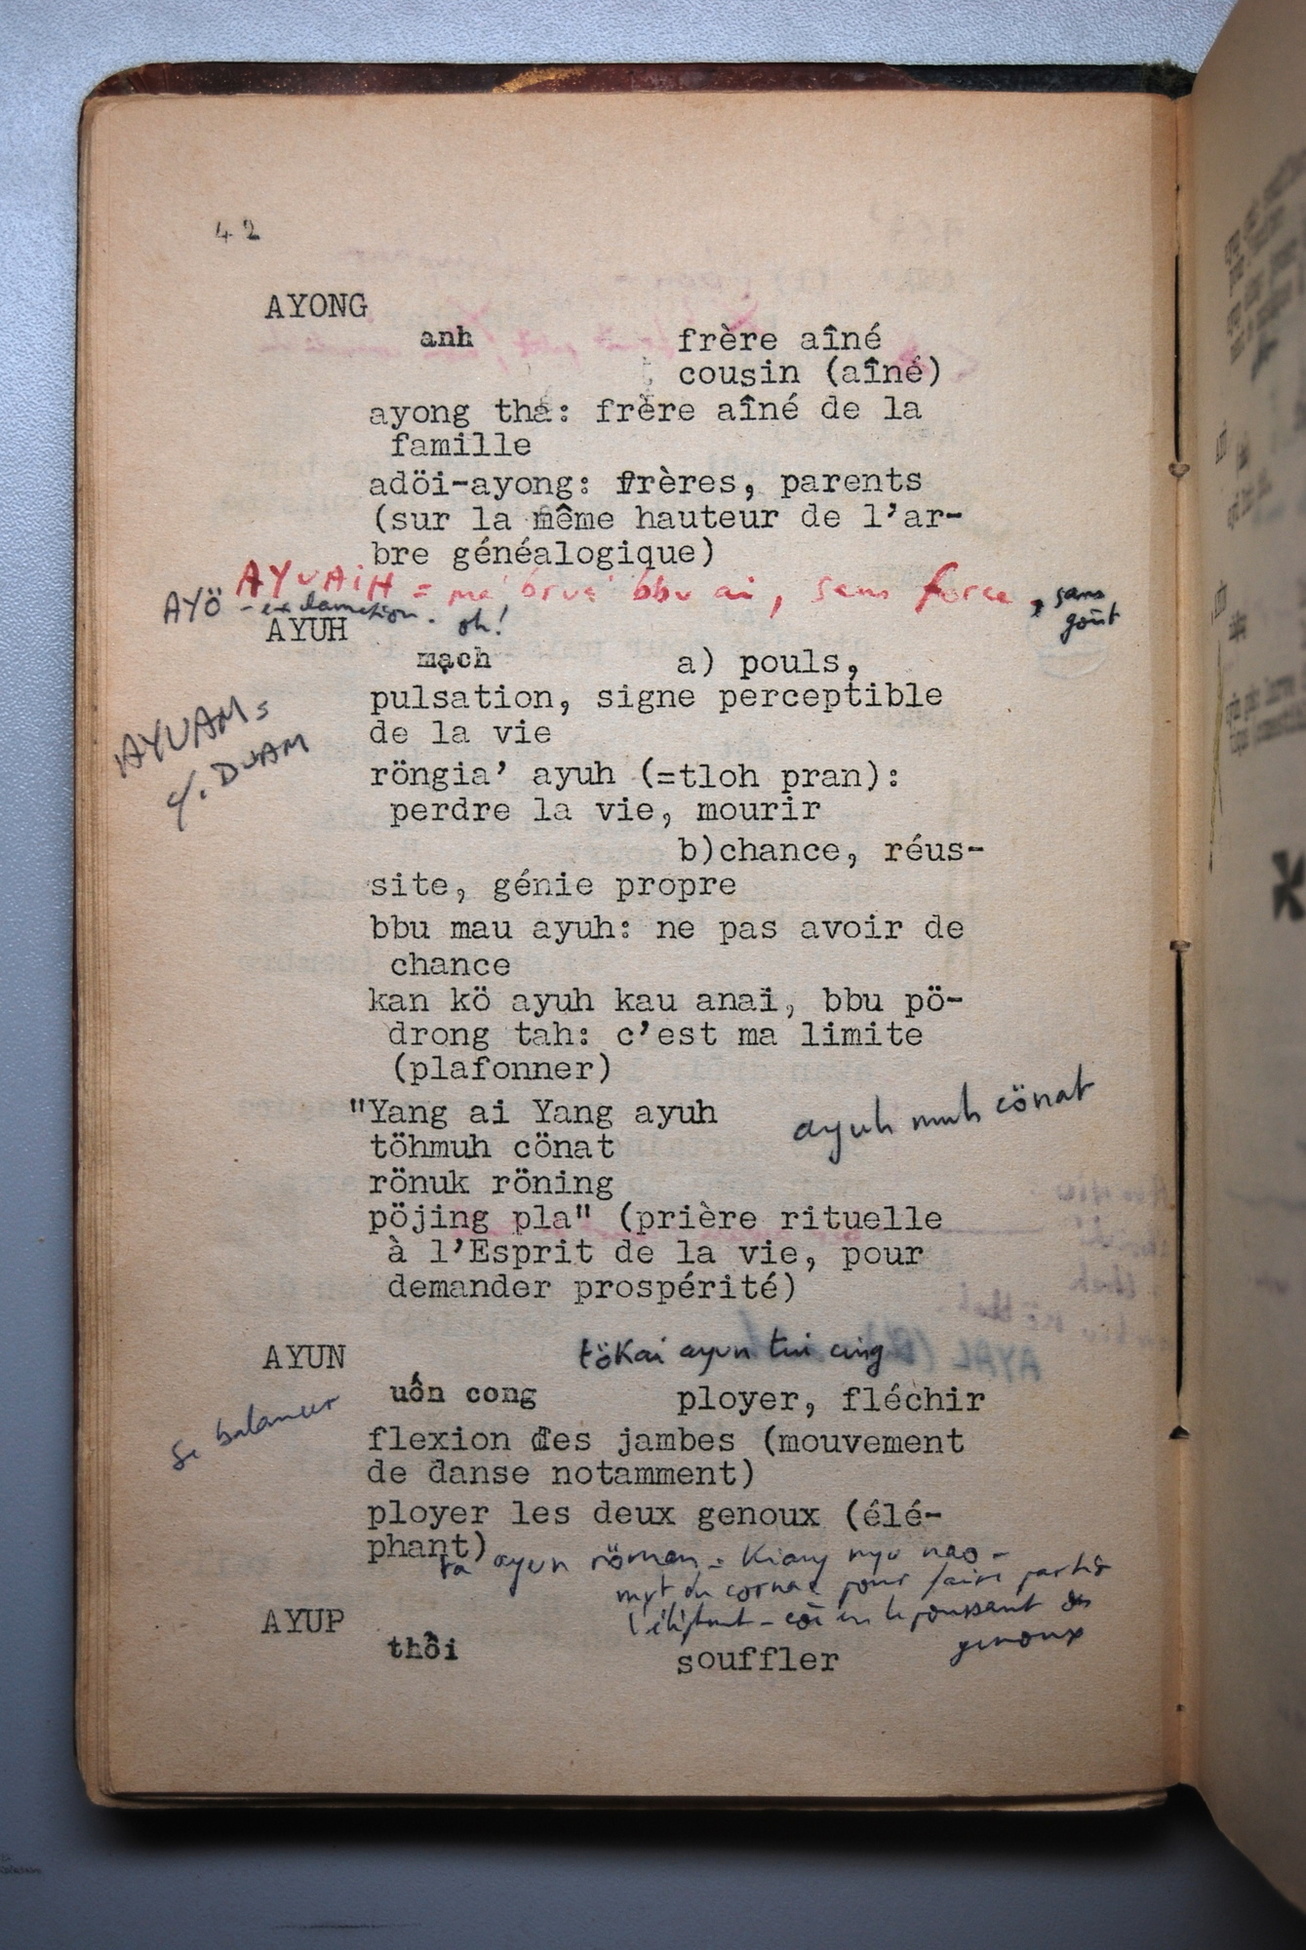 42
AYONG
anh frère aîné
cousin (aîné)
ayong tha: frère aîné de la
famille
adöi-ayong: frères, parents
(sur la même hauteur de l'ar-
bre généalogique)
AYUAIH = bbu ai, sans force, sans
goût
AYÖ - exclamation. oh!
AYUH
mạch a) pouls,
pulsation, signe perceptible
de la vie
AYUAM
cf. DUAM
röngia' ayuh (=tloh pran):
perdre la vie, mourir
b)chance, réus-
site, génie propre
bbu mau ayuh: ne pas avoir de
chance
kan kö ayuh kau anai, bbu pö-
drong tah: c'est ma limite
(plafonner)
"Yang ai Yang ayuh
ayuh muh cönat
töhmuh cönat
rönuk röning
pöjing pla" (prière rituelle
à l'Esprit de la vie, pour
demander prospérité)
AYUN tökai ayun tui cing
uốn cong ployer, fléchir
se balancer
flexion des jambes (mouvement
de danse notamment)
ployer les deux genoux (élé-
phant)
ayun röman = nao -
mvt du cornac pour faire partir
l'éléphant - en le poussant des
genoux
AYUP
thổi souffler